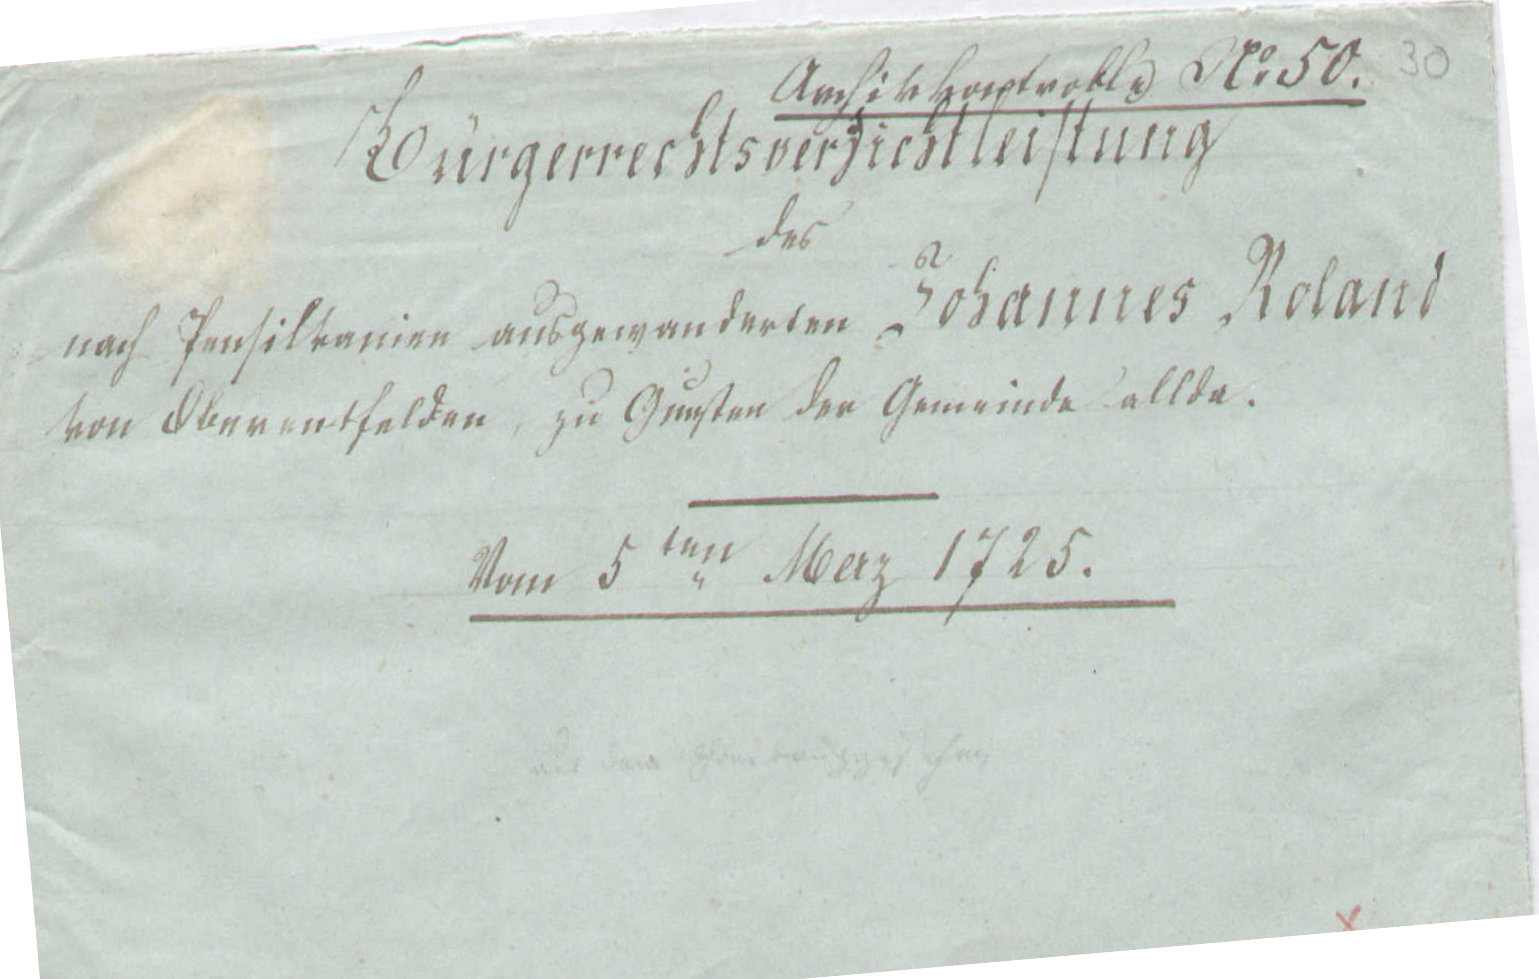 Archivkontrolle No. 50. 30
Bürgerrechtsverzichtleistung
des
nach Pensilvanien ausgewanderten Johannes Roland
von Oberentfelden, zu Gunsten der Gemeinde allda.
Vom 5ten Merz 1725.
aus dem